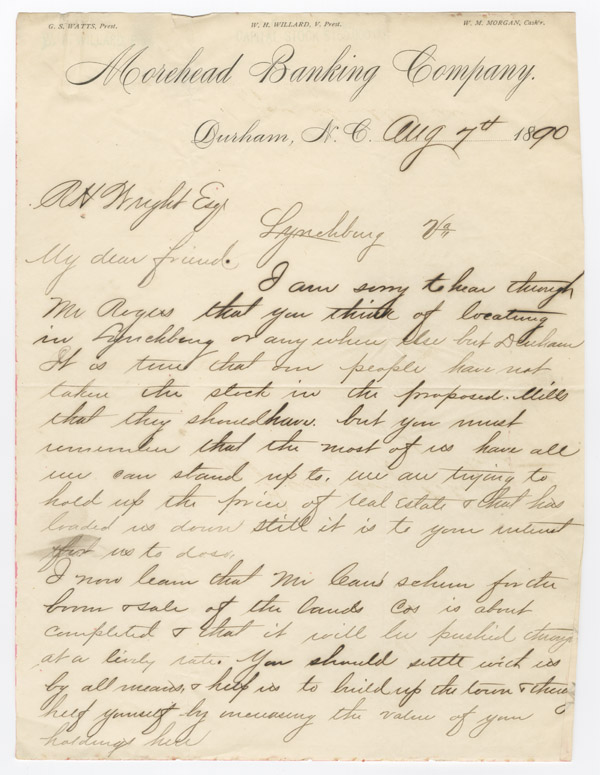 G. S. WATTS, Prest. W. H. WILLARD, V. Prest. W. M. MORGAN, Cash'r.
Morehead Banking Company.
Durham, N. C. Aug 7th 1890
R H Wright Esq
Lynchburg Va
My dear friend.
I am sorry to hear through
Mr Rogers that you think of locating
in Lynchburg or any where else but Durham
It is true that our people have not
taken the stock in the proposed Mills
that they should have. but you must
remember that the most of us have all
we can stand up to. we are trying to
hold up the price of real Estate & that has
loaded us down still it is to your interest
for us to do so.
I now learn that Mr Carr's scheme for the
boom & sale of the lands Cos is about
completed & that it will be pushed through
at a lively rate. You should settle with us
by all means, & help us to build up the town & thus
help yourself by increasing the value of your
holdings here